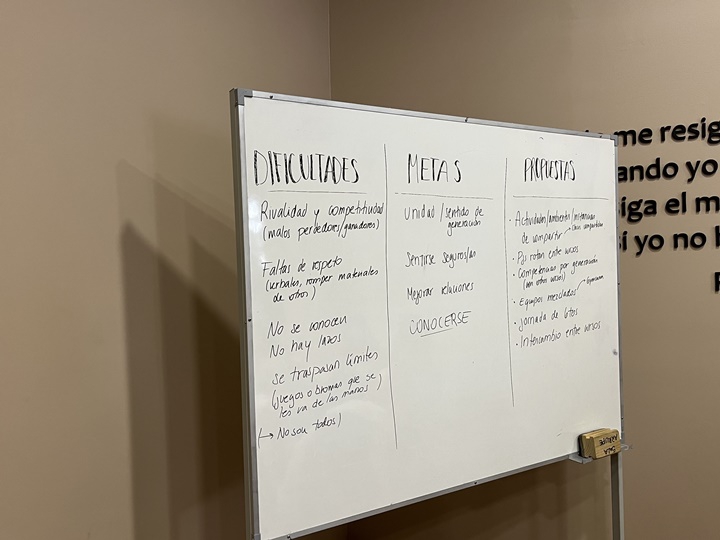 DIFICULTADES
Rivalidad y competitividad
(malos perdedores/ganadores)
Faltas de respeto
(verbales, romper materiales
de otros)
No se conocen
No hay lazos
Se traspasan límites
(juegos o bromas que se
les va de las manos)
(→ No son todos)
METAS
Unidad/sentido de
generación
Sentirse seguros/as
Mejorar relaciones
CONOCERSE
PROPUESTAS
• Actividades/ambientes/instancias
de compartir
• Pjs rotan entre cursos
• Competencias por generación
(con otros cursos)
• Equipos mezclados
• Jornada de
• Intercambio entre cursos
me resig
ando yo
iga el m
si yo no b
SALA